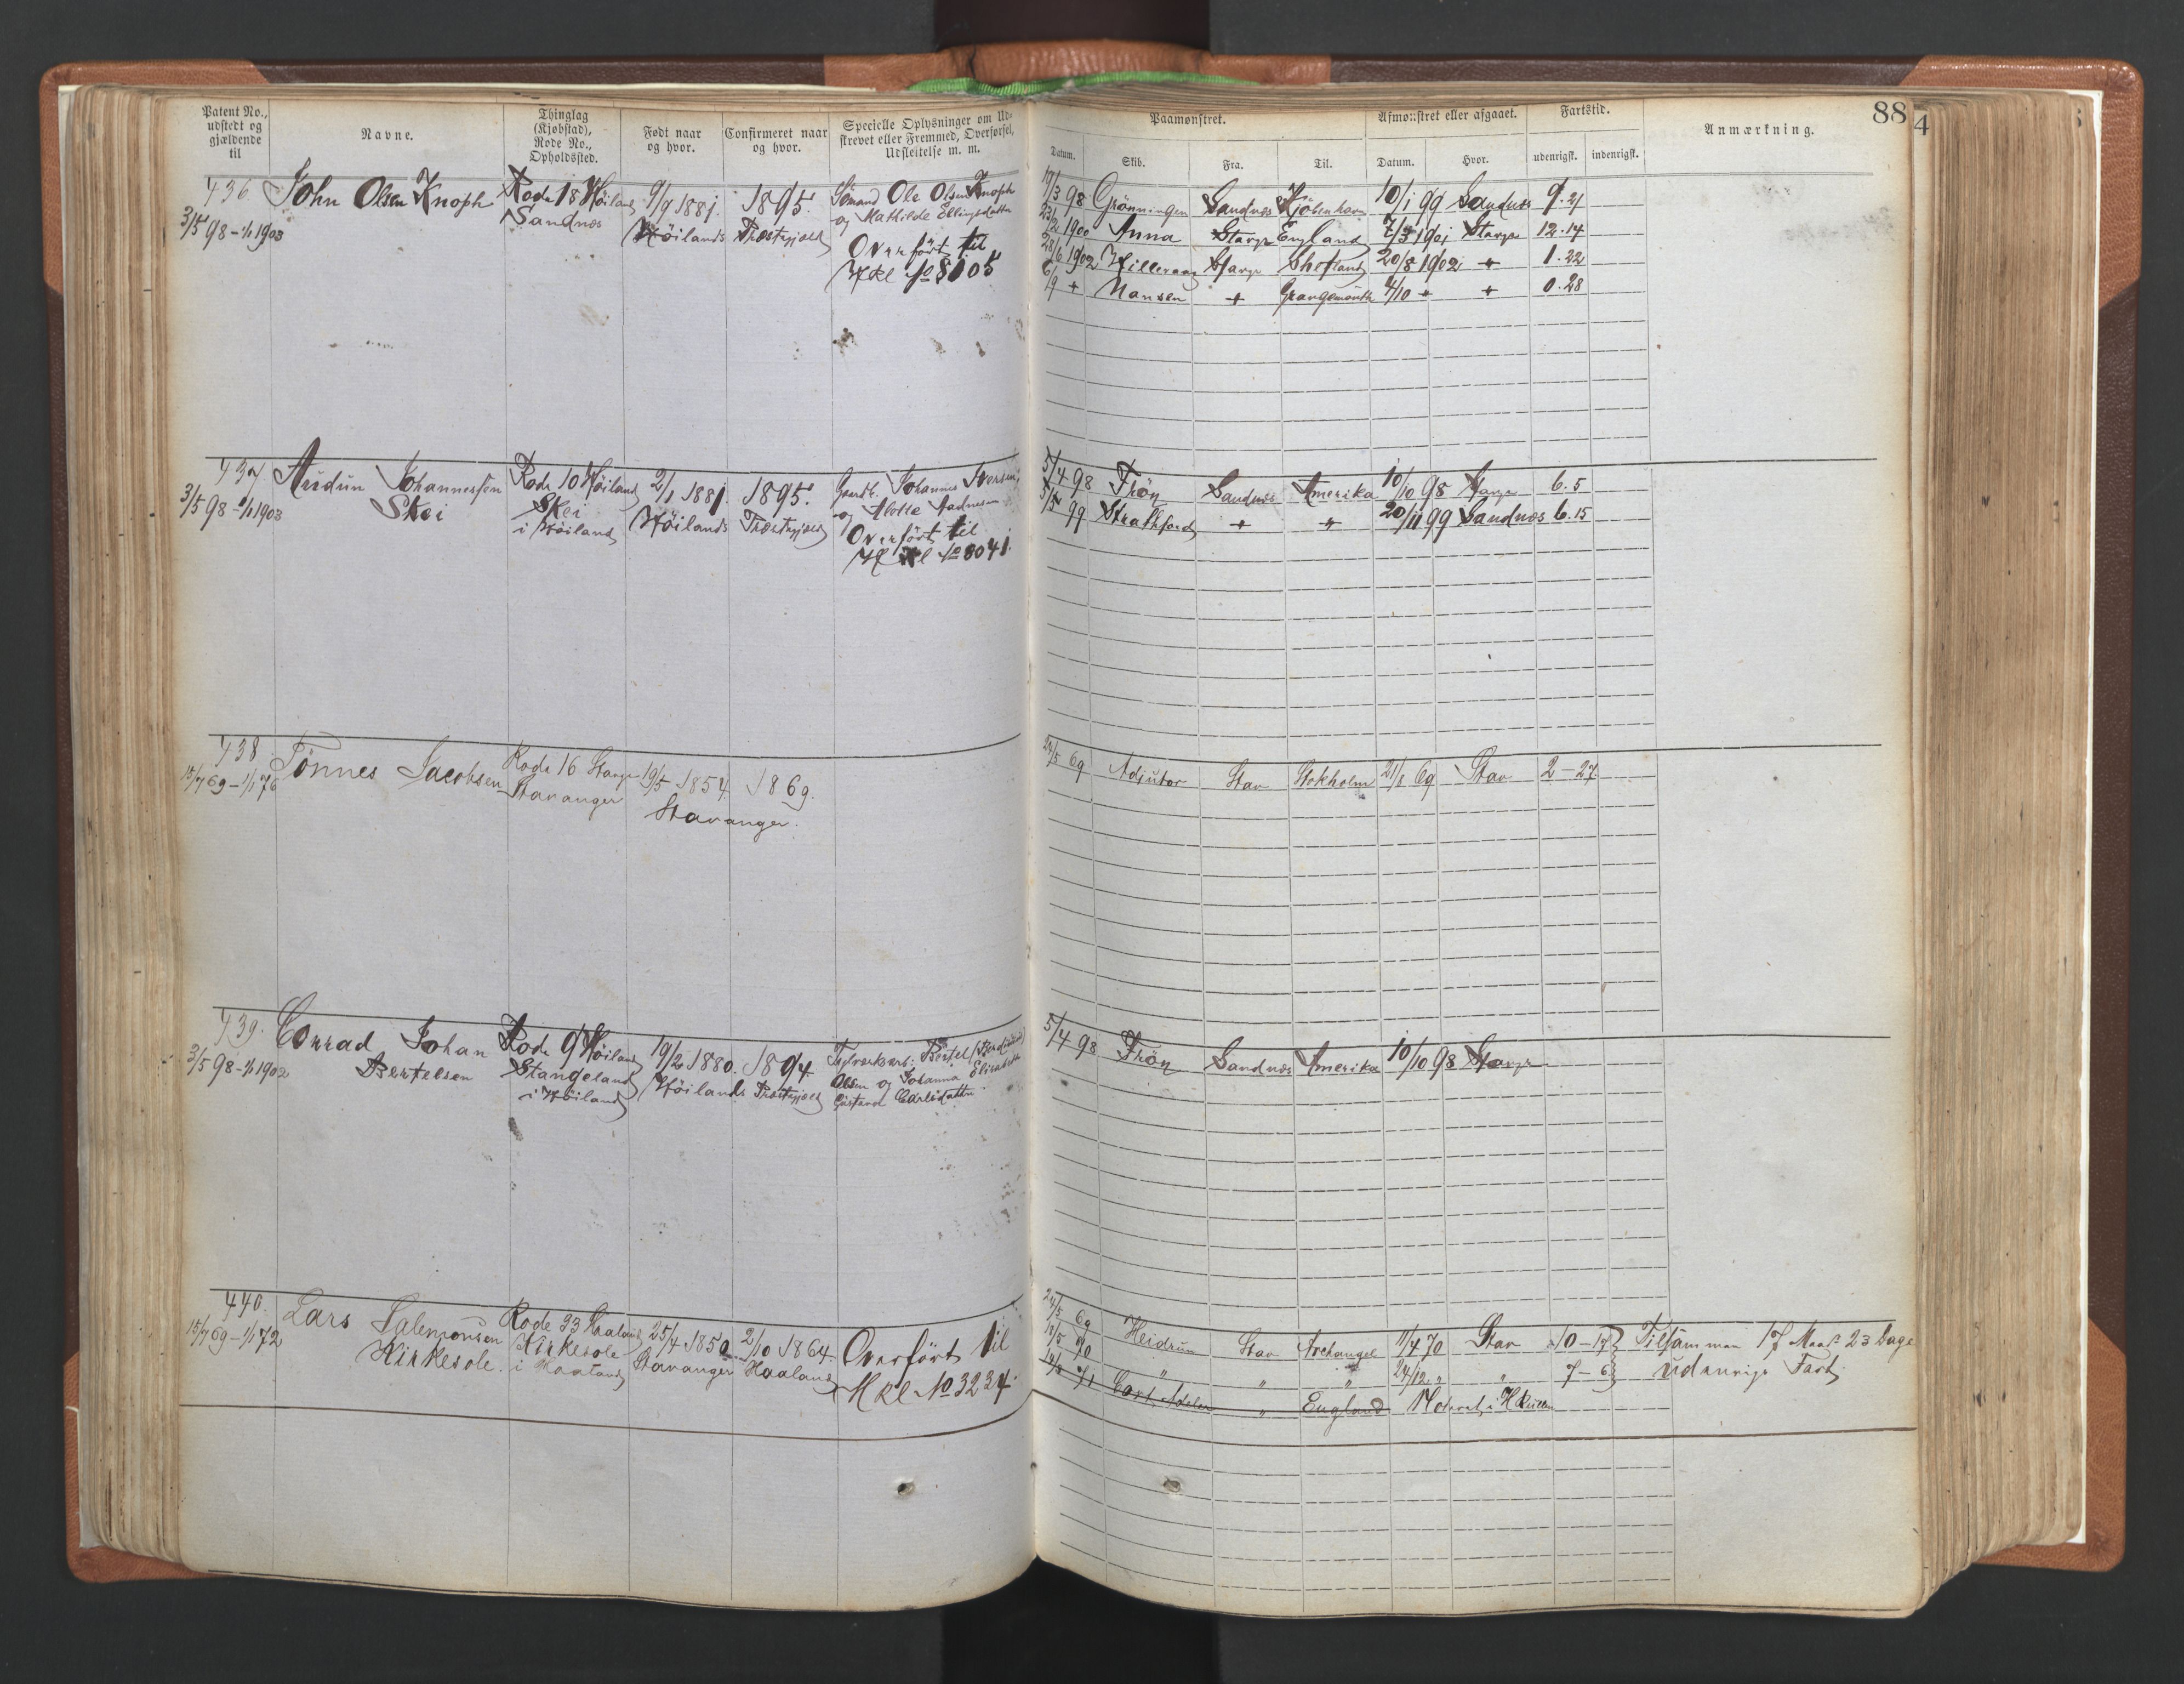 Patent No., udstedt og gjældende til
Navne.
Thinglag (Kjøbstad), Rode No., Opholdssted.
Født naar og hvor.
Confirmeret naar og hvor.
Specielle Oplysninger om Udskrevet eller Fremmed, Overførsel, Udslettelse m. m.
Paamønstret.
Afmønstret eller afgaaet.
Fartstid.
Anmærkning.
88
4
Datum.
Skib.
Fra.
Til.
Datum.
Hvor.
udenrigsk.
indenrigsk.
436 John Olsen Knoph Rode 18 Höiland 9/9 1881. 1895. Sömand Ole Olsen Knoph
3/5 98 - 1/1 1903 Sandnæs Höilands Præstegjæld og Mathilde Ellingsdatter
Overfört til
Hkl No 8105
17/3 98 Grönningen Sandnæs Kjöbenhavn 10/1 99 Sandnæs 9.21
23/2 1900 Anna Stavgr England 7/3 1901 Stavgr 12.14
28/6 1902 Stavgr Shetland 20/8 1902 + 1.22
6/9 + Nansen + Grangemouth 4/10 + + 0.28
437 Audun Johannessen Rode 10 Höiland 2/1 1881. 1895. Gaardbr. Johannes Iversen
3/5 98 - 1/1 1903 Skei Skei Höilands Præstegjæld og
i Höiland Overfört til
Hkl No 8041.
5/4 98 Thröy Sandnæs Amerika 10/10 98 Stavgr 6.5
5/5 99 Strathford + " 20/11 99 Sandnæs 6.15
438 Tönnes Jacobsen Rode 16 Stavgr 19/5 1854. 1869.
15/7 69 - 1/1 76 Stavanger Stavanger.
24/5 69 Adjutor Stav Stokholm 21/8 69 Stav 2 - 27
439. Conrad Johan Rode 9 Höiland 19/2 1880. 1894. Bertel
3/5 98 - 1/1 1902 Bertelsen Stangeland Höilands Præstegjæld Olsen og Johanna Elisabeth
i Höiland Gustava Carlsdatter
5/4 98 Thröy Sandnæs Amerika 10/10 98 Stavgr
440. Lars Salemonsen Rode 33 Haaland 25/4 1850 2/10 1864. Overfört til
15/7 69 - 1/1 72 Kirkesole. Kirkesole Stavanger Haaland Hkl No 3234.
i Haaland
24/5 69 Heidrun Stav Archangel 11/4 70 Stav 10 - 17 Tilsammen 17 Maar 23 Dage
19/5 70 " " " 24/12 " " 7 - 6 udenrigs Fart.
14/4 71 Cort Adeler " England Noteret i H Rullen